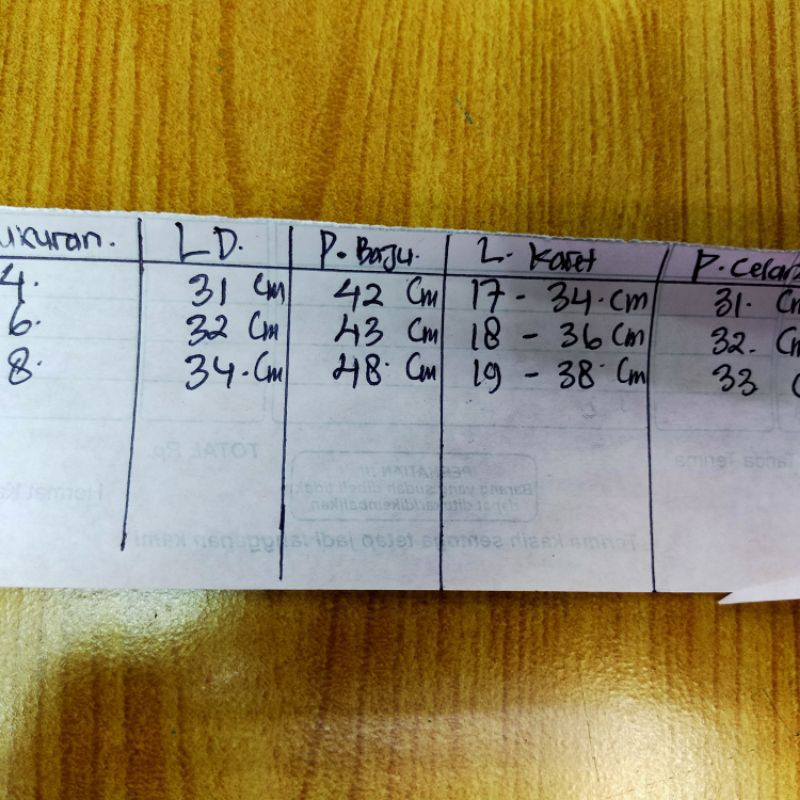 ukuran. LD. P. Baju. L. Karet P. Celana
4. 31 Cm 42 Cm 17 - 34. Cm 31. Cm
6. 32 Cm 43 Cm 18 - 36 Cm 32. Cm
8. 34. Cm 48. Cm 19 - 38 Cm 33 C
TOTAL Rp.
Tanda Terima
PERHATIAN !!!
Barang yang sudah dibeli tidak
dapat ditukar/dikembalikan
Hormat Ka
Terima kasih semoga tetap jadi langganan kami